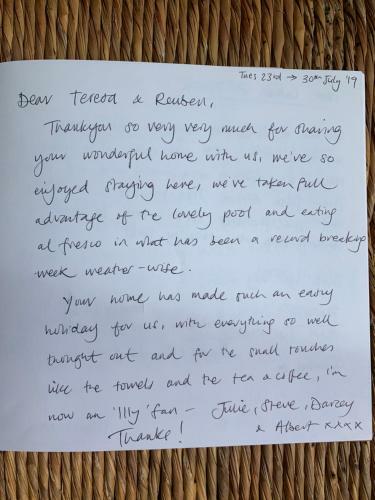 Tues 23rd → 30th July '19
Dear Teresa & Reuben,
Thankyou so very very much for sharing
your wonderful home with us, we've so
enjoyed staying here, we've taken full
advantage of the lovely pool and eating
al fresco in what has been a record breaking
week weather-wise.
Your home has made such an easy
holiday for us, with everything so well
thought out and for the small touches
like the towels and the tea & coffee, i'm
now an 'Illy' fan – Julie, Steve, Darcey
Thanks! & Albert xxxx